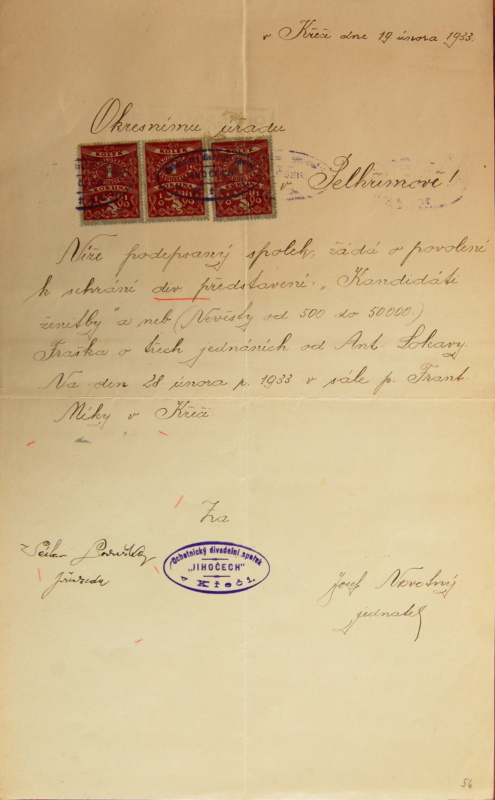 v Křči dne 19 února 1933.
Okresnímu úřadu
KOLEK KOLEK KOLEK
1 1 1
KORUNA KORUNA KORUNA
v Pelhřimově!
Níže podepsaný spolek, žádá o povolení
k sehrání div představení: „Kandidáti
ženitby" a neb (Nevěsty od 500 do 50000.)
Fraška o třech jednáních od Ant. Lokavy.
Na den 28 února r. 1933 v sále p. Frant
Míky v Křči.
Za
Ochotnický divadelní spolek
„JIHOČECH"
v Křči.
Josef Novotný
jednatel
56